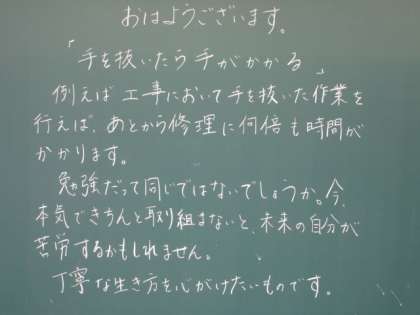 おはようございます。
「手を抜いたら手がかかる」
例えば工事において手を抜いた作業を
行えば、あとから修理に何倍も時間が
かかります。
勉強だって同じではないでしょうか。今、
本気できちんと取り組まないと、未来の自分が
苦労するかもしれません。
丁寧な生き方を心がけたいものです。